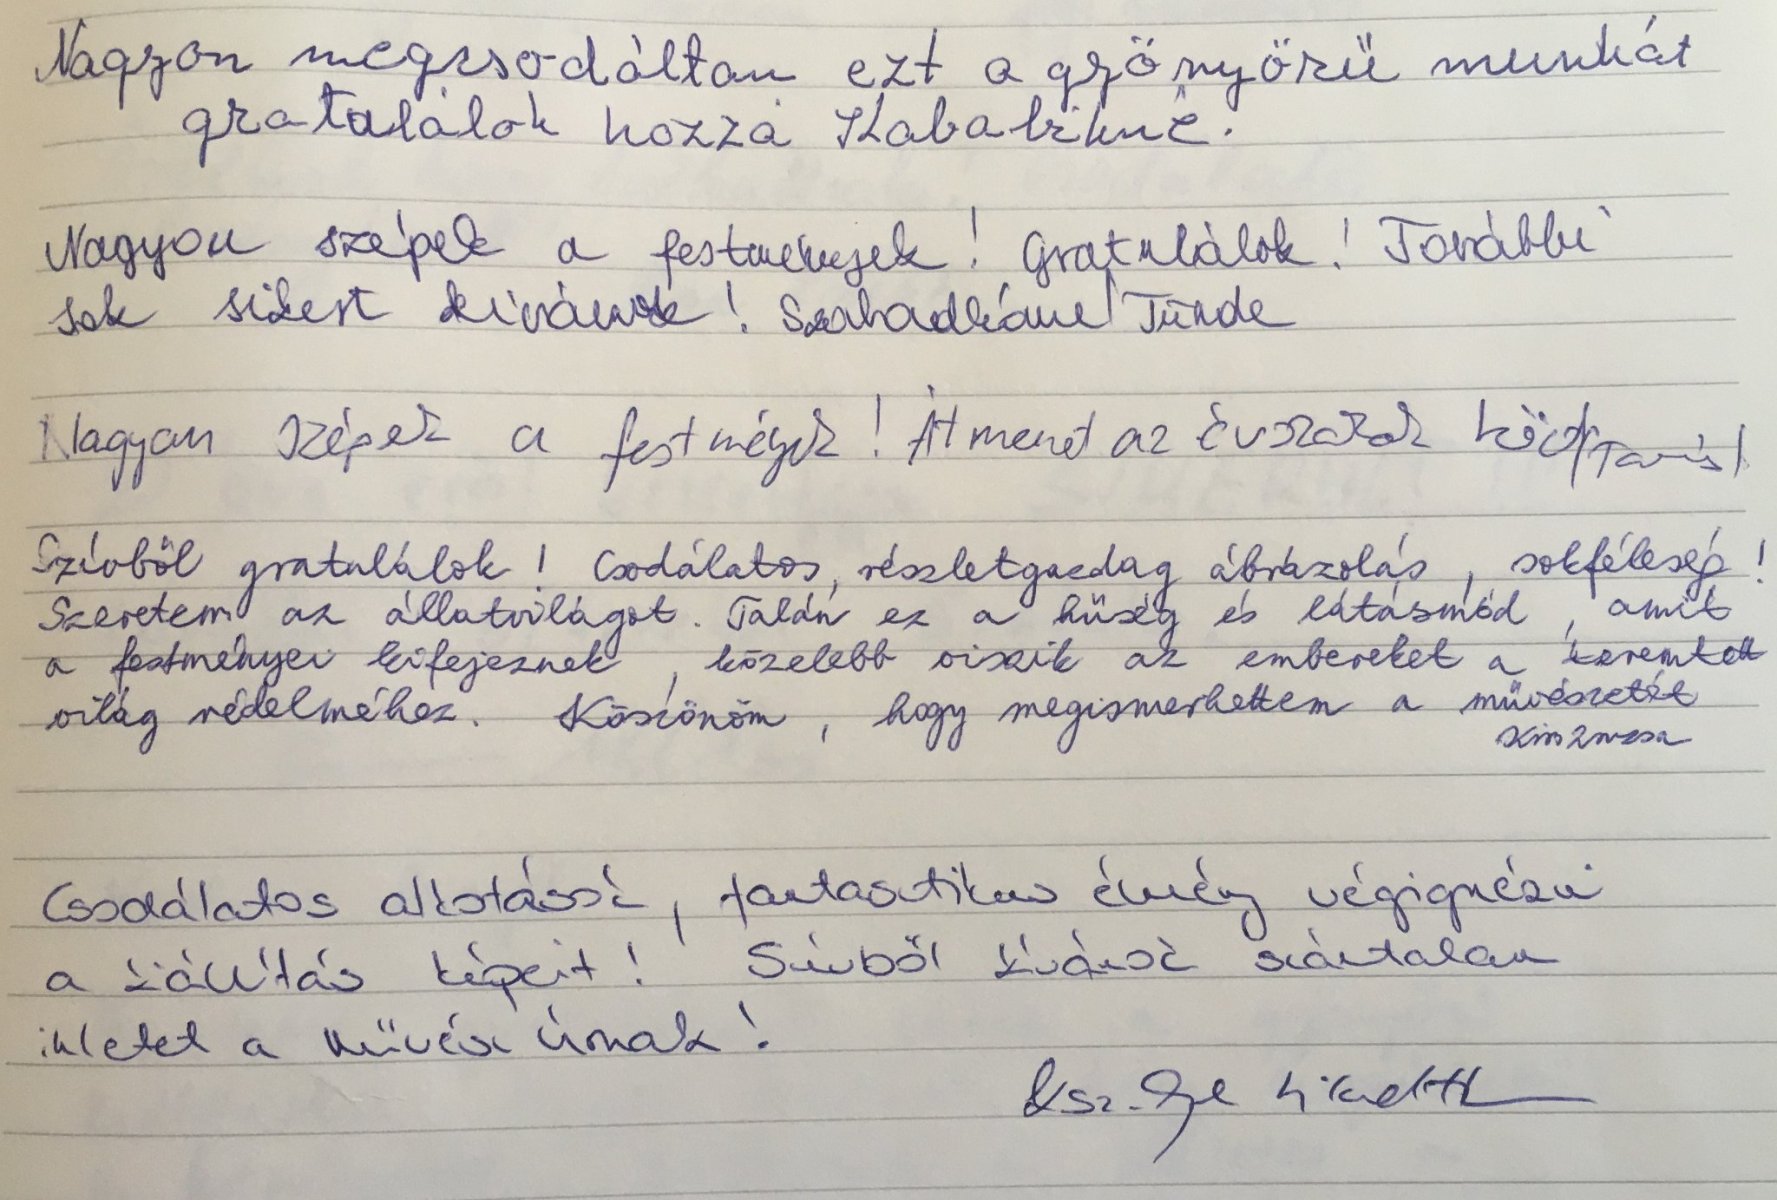 Nagyon megcsodáltam ezt a gyönyörű munkát
gratulálok hozzá
Nagyon szépek a festmények! Gratulálok! További
sok sikert kívánok! Szabadkáné Tünde
Nagyon szépek a festmények! Átmenet az évszakok
Szívből gratulálok! Csodálatos, részletgazdag ábrázolás, sokféleség!
Szeretem az állatvilágot. Talán ez a hűség és látásmód, amit
a festményei kifejeznek, közelebb viszik az embereket a teremtett
világ védelméhez. Köszönöm, hogy megismerhettem a művészetét
Kiss Zsuzsa
Csodálatos alkotások, fantasztikus élmény végignézni
a kiállítás képeit! Szívből kívánok szártalan
ihletet a művész úrnak!